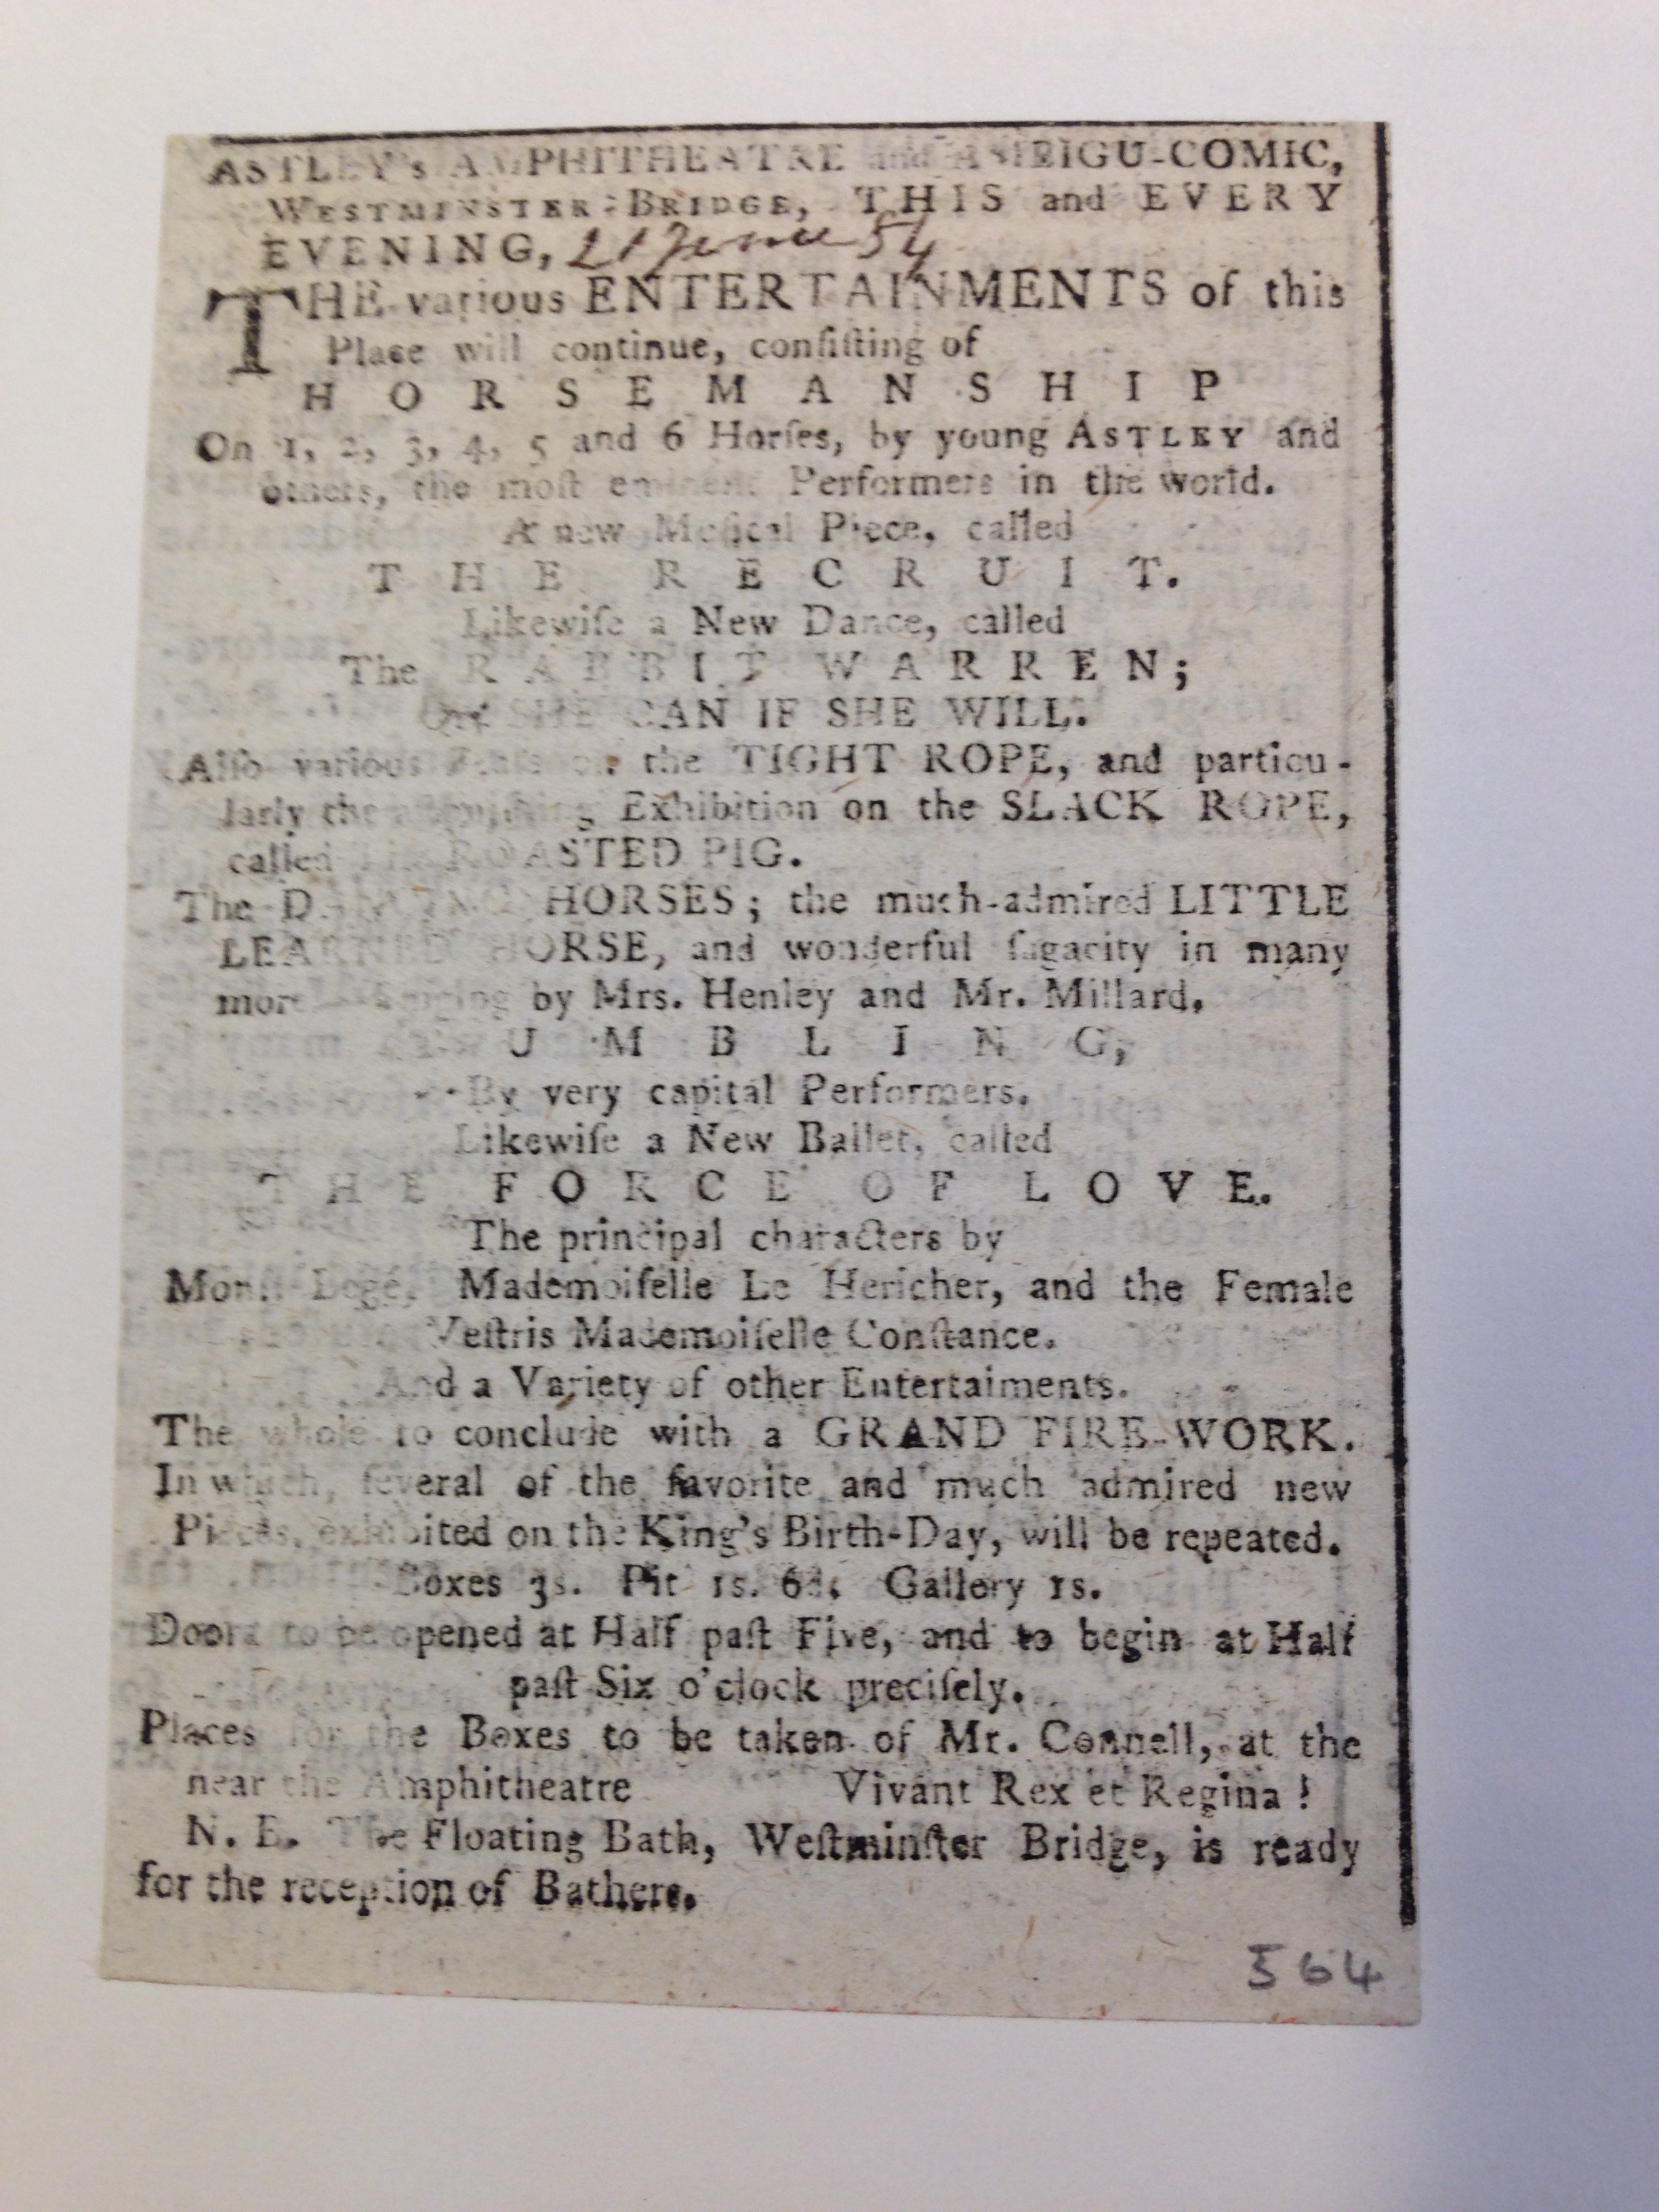 ASTLEY's AMPHITHEATRE and AMBIGU-COMIC,
WESTMINSTER-BRIDGE, THIS and EVERY
EVENING, 21 June 84
THE various ENTERTAINMENTS of this
Place will continue, conſiſting of
HORSEMANSHIP
On 1, 2, 3, 4, 5 and 6 Horſes, by young ASTLEY and
others, the moſt eminent Performers in the world.
A new Muſical Piece, called
THE RECRUIT.
Likewiſe a New Dance, called
The RABBIT WARREN;
Or SHE CAN IF SHE WILL.
Alſo various on the TIGHT ROPE, and particu-
larly the Exhibition on the SLACK ROPE,
called The ROASTED PIG.
The DANCING HORSES; the much-admired LITTLE
LEARNED HORSE, and wonderful ſagacity in many
more by Mrs. Henley and Mr. Millard,
UMBLING,
By very capital Performers.
Likewiſe a New Ballet, called
THE FORCE OF LOVE.
The principal characters by
Monſ. Mademoiſelle Le Hericher, and the Female
Veſtris Mademoiſelle Conſtance.
And a Variety of other Entertaiments.
The whole to conclude with a GRAND FIRE-WORK.
In which, ſeveral of the favorite and much admired new
Pieces, exhibited on the King's Birth-Day, will be repeated.
Boxes 3s. Pit 1s. 6d. Gallery 1s.
Doors to be opened at Half paſt Five, and to begin at Half
paſt Six o'clock preciſely.
Places for the Boxes to be taken of Mr. Connell, at the
near the Amphitheatre Vivant Rex et Regina!
N. B. The Floating Bath, Weſtminſter Bridge, is ready
for the reception of Bathers.
564